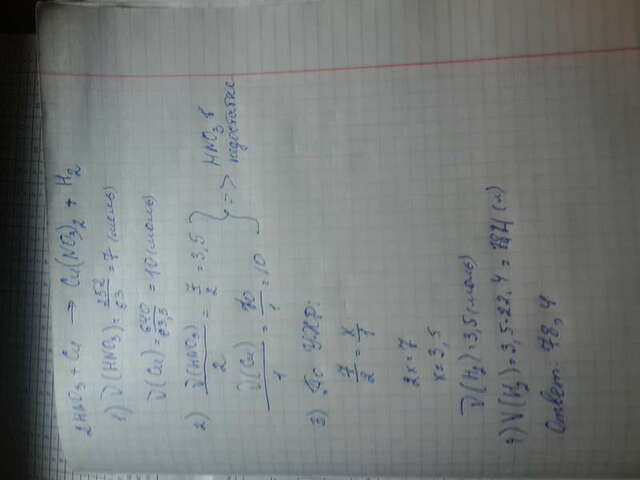 2HNO3 + Cu → Cu(NO3)2 + H2
1) ν(HNO3) = 252/63 = 7 (моль)
ν(Cu) = 640/63,5 = 10 (моль)
2) ν(HNO3)/2 = 7/2 = 3,5
ν(Cu)/1 = 10/1 = 10
} => HNO3 в
недостатке
3) По УХР:
7/2 = x/1
2x = 7
x = 3,5
ν(H2) = 3,5 (моль)
4) V(H2) = 3,5·22,4 = (л)
Ответ: 78,4